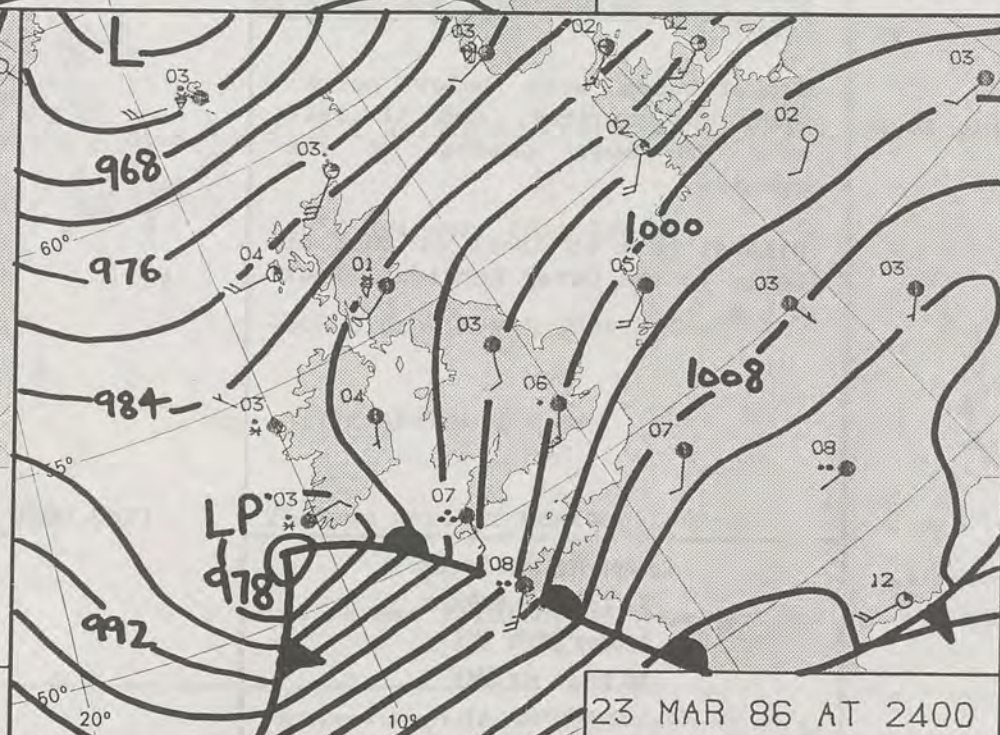 L
03
03
02
02
03
968
03
02
02
60°
976
04
01
1000
05
03
03
03
984
03
04
06
1008
55°
07
08
LP
03
07
978
08
992
12
50°
20°
10°
23 MAR 86 AT 2400